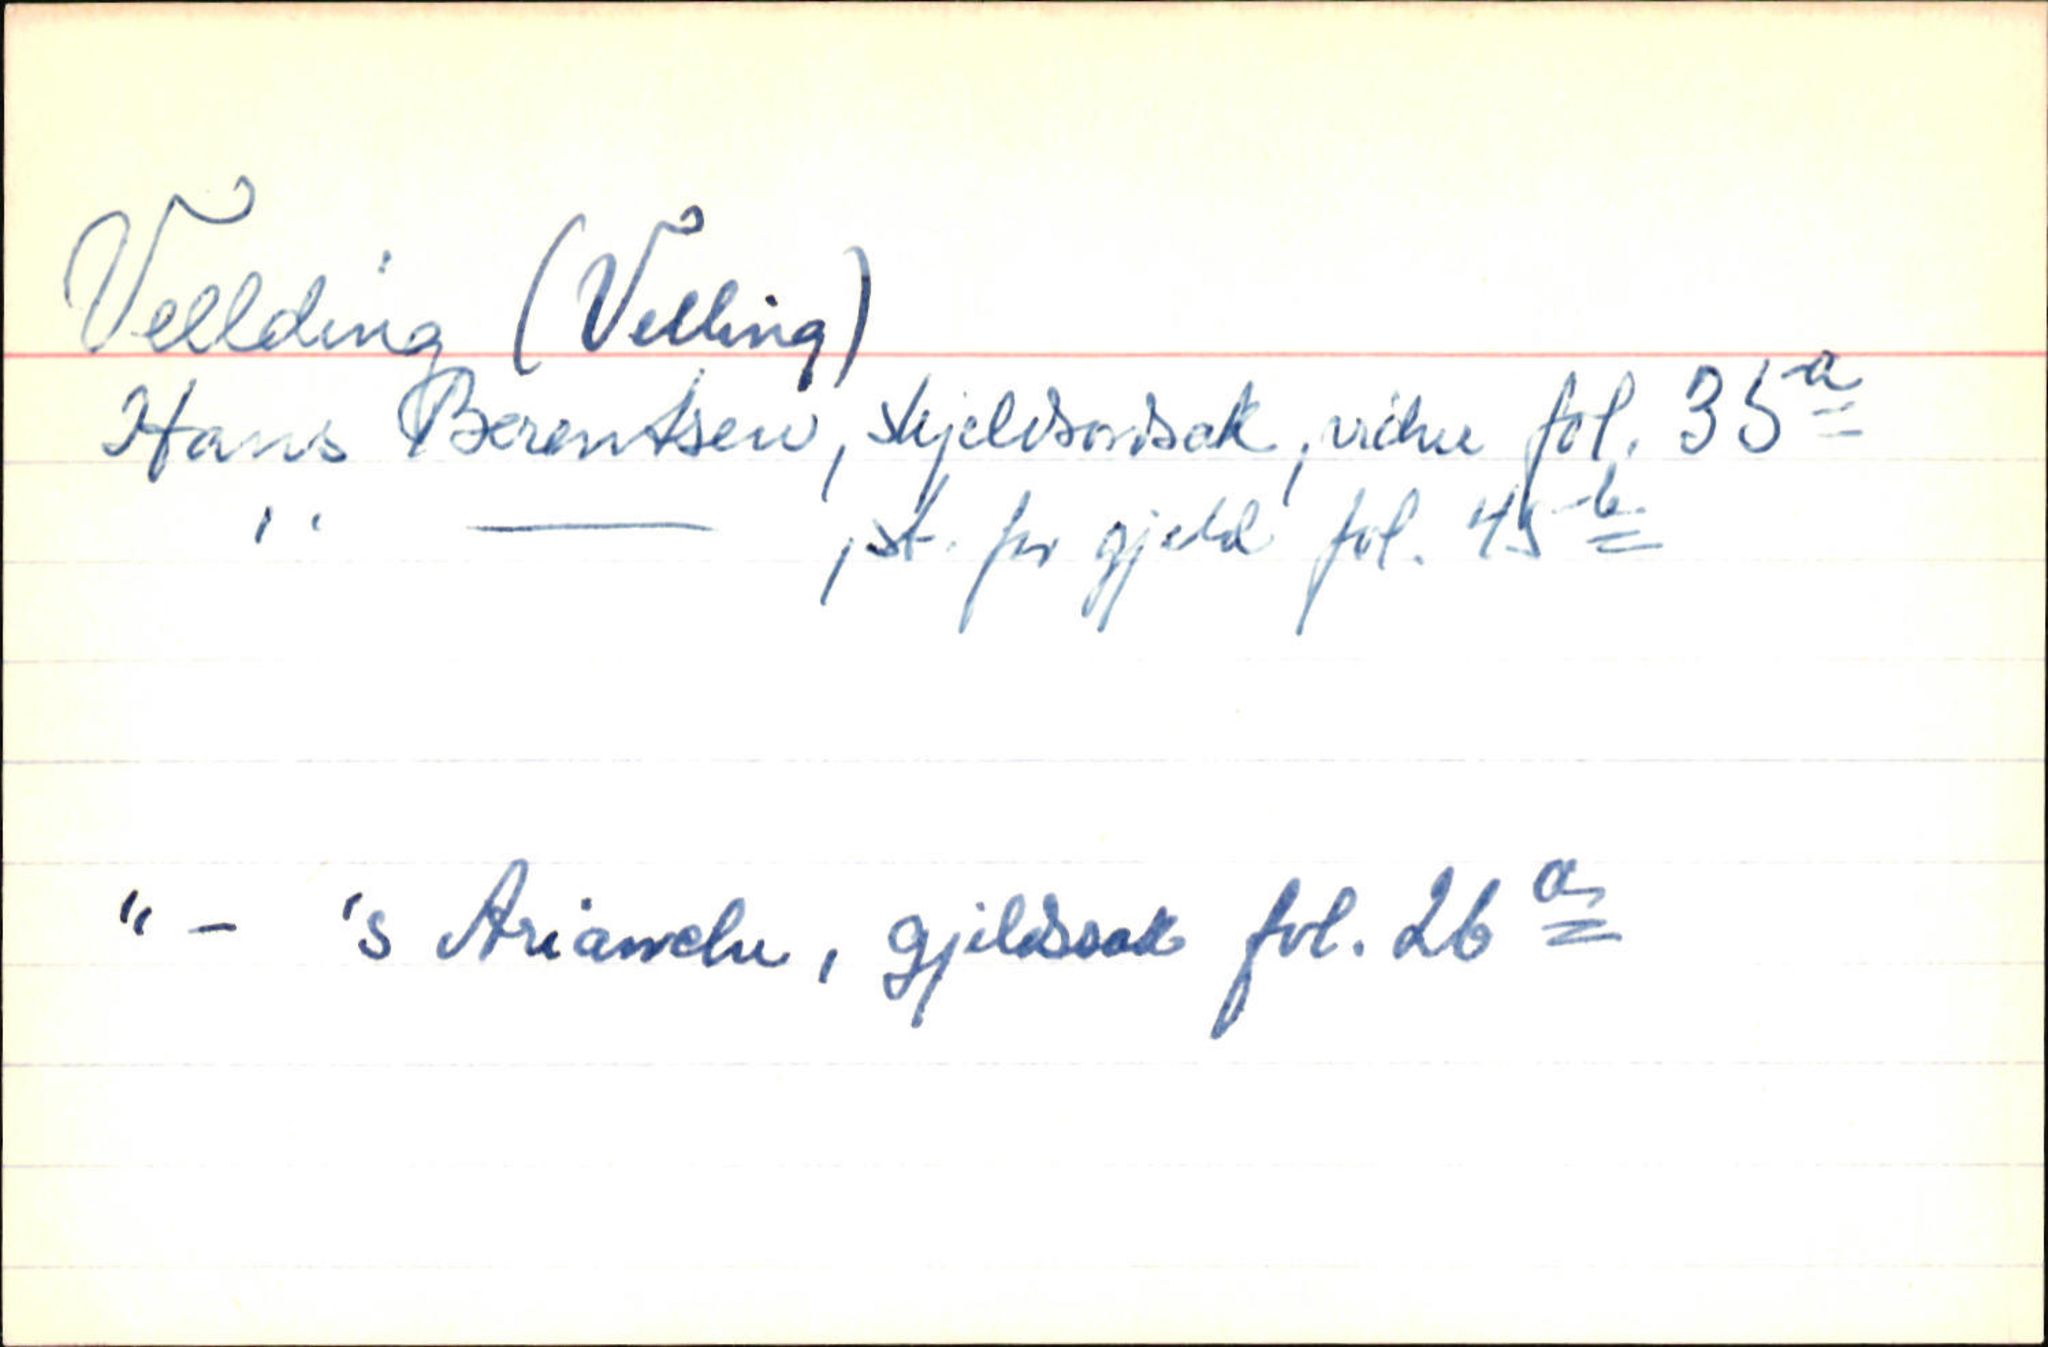 Vellding (Velling)
Hans Berentsen, skjeldsordsak, vidne fol. 35a
" ——— , st. for gjeld fol. 45b
" - 's Arianche, gjeldssak fol. 26a